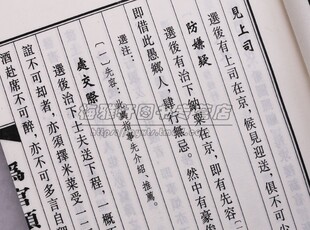 見上司
選後有上司在京，候見迎送，俱不可少
防嫌疑
選後有治下納粟在京，即有先容
即借此愚鄉人，肆行無忌。然中有豪俊
選注：
〔一〕先容：事先介紹、推薦。
處交際
選後治下士夫送下程，一概
誼不可却者，亦須擇米菜受一二
酒赴席不可醉，亦不可多言自
為官須